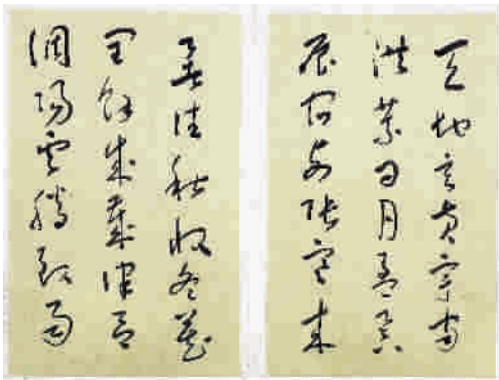 天地玄黃宇宙
洪荒日月盈昃
辰宿列張寒來
暑往秋收冬藏
閏餘成歲律呂
調陽雲騰致雨